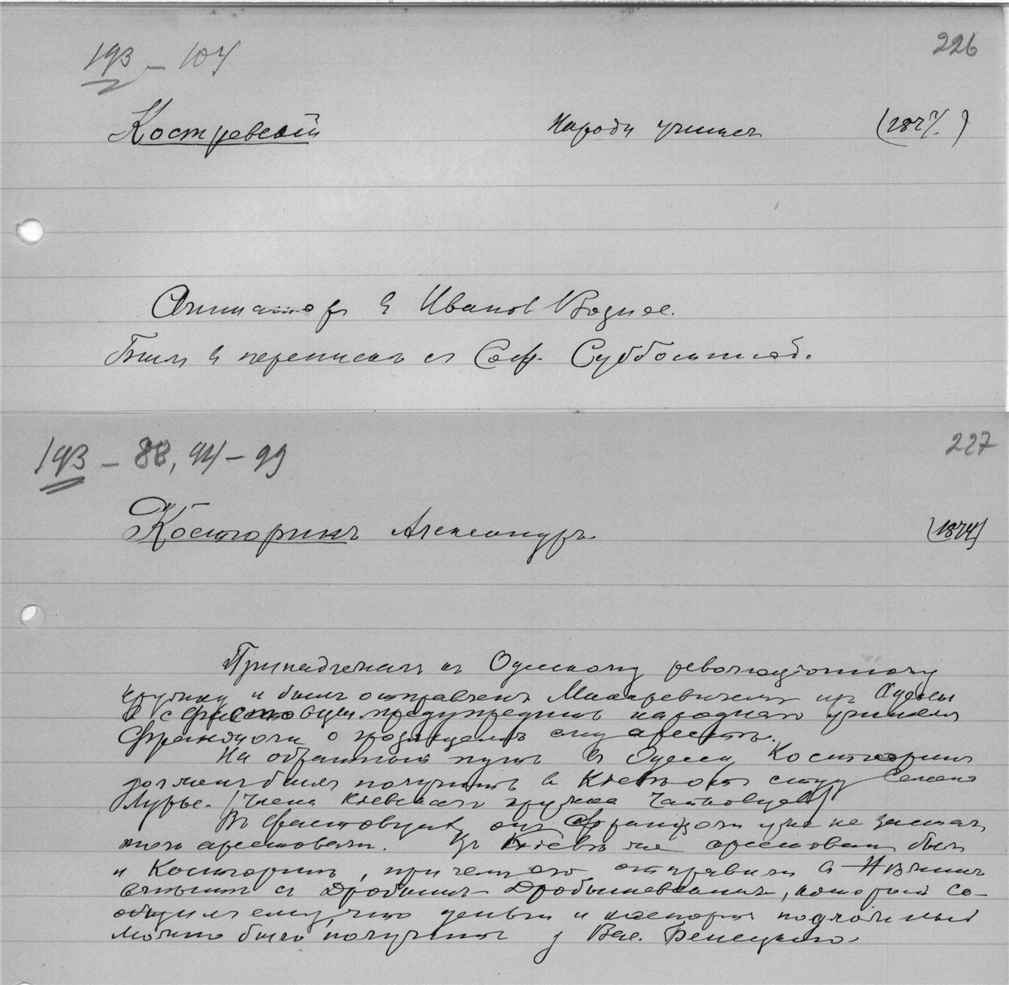 193 – 104
226
Костревский Народн учител (1874)
Агитатор в Иванов Вознес.
Был в переписке с Соф. Субботиной.
193 – 88, 94 – 99
227
Косторинъ Александръ (1874)
Принадлежалъ къ Одесскому революционному
кружку и былъ отправленъ Макаревичемъ изъ Одессы
в с. Фастовцы предупредить народнаго учителя
Франжоли о грозящемъ ему арестѣ.
На обратномъ пути в Одессу Косторинъ
долженъ былъ получить в Кіевѣ от студ Семена
Лурье. (Члена кіевскаго кружка Чайковцев)
Въ Фастовцахъ он Франжоли уже не засталъ
арестовали. Въ Кіевѣ же арестован был
и Косторинъ, при
с Дробышъ-Дробышевскимъ, который со-
общилъ ему, что деньги и паспорта подложные
можно было получить у Вал. Бенецкаго.